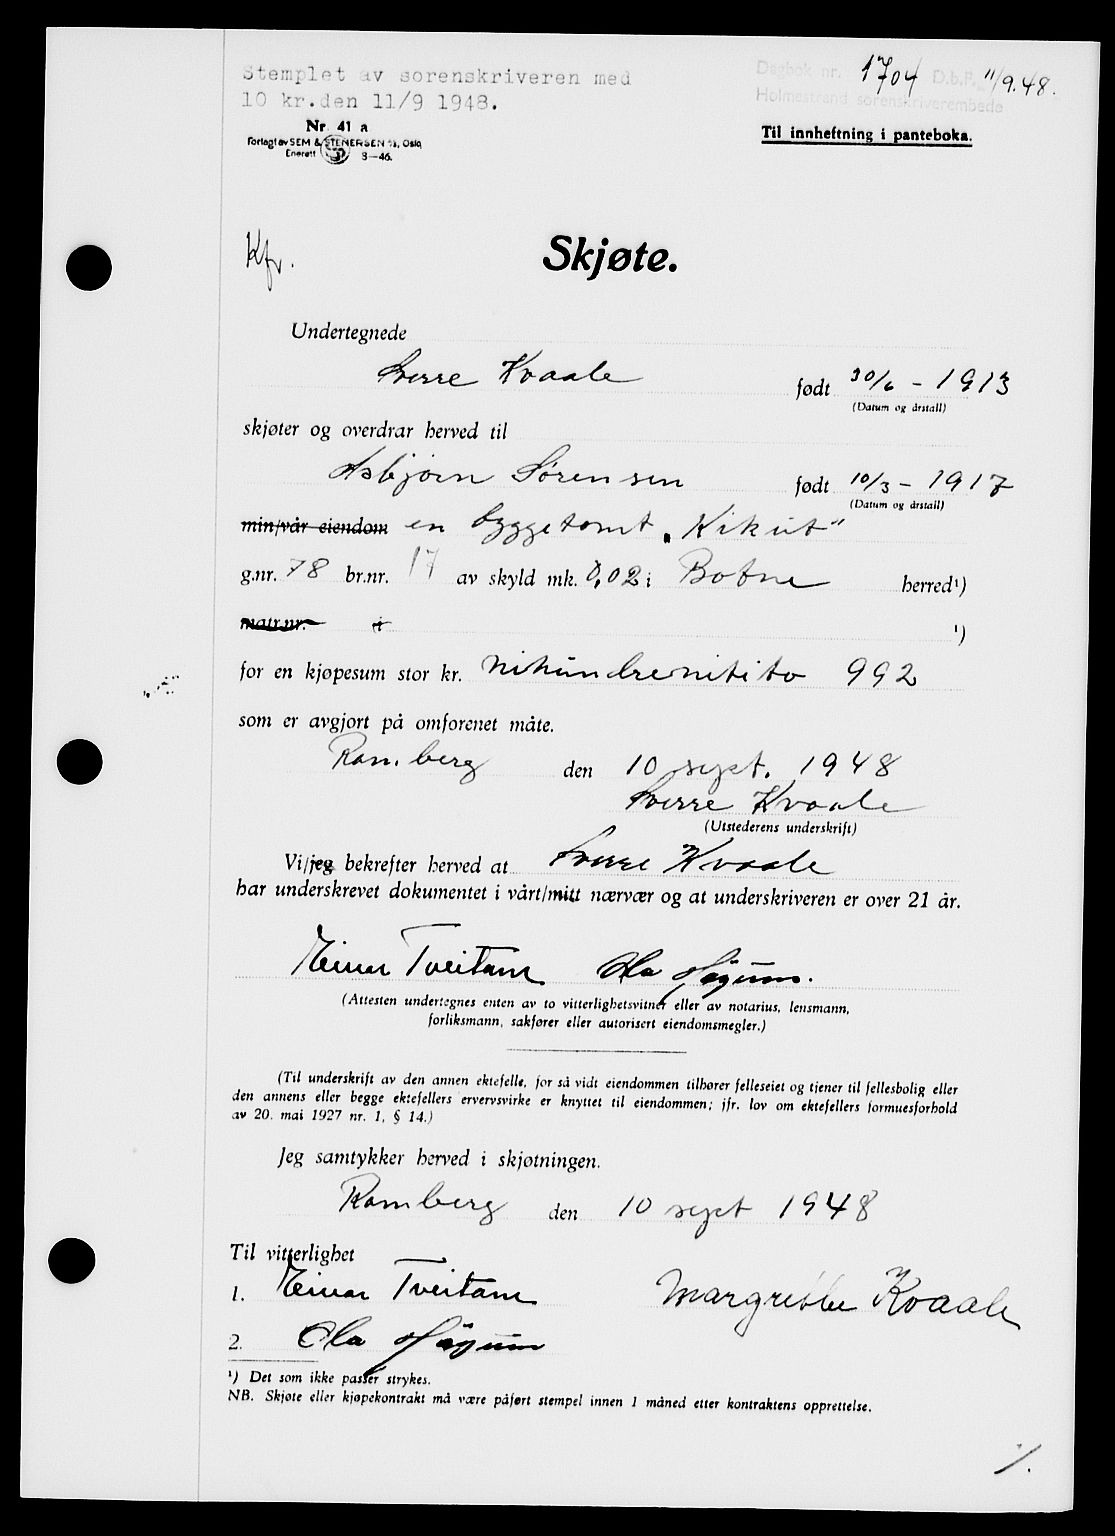 Stemplet av sorenskriveren med
10 kr.den 11/9 1948.
Dagbok nr. 1704 D.b.F. 11/9.48.
Holmestrand sorenskriverembede
Nr. 41 a
Forlagt av SEM & STENERSEN A/S, Oslo
Enerett 3—46.
Til innheftning i panteboka.
Kfr.
Skjøte.
Undertegnede
Sverre Kvaale født 30/6 - 1913
(Datum og årstall)
skjøter og overdrar herved til
Asbjørn Sørensen født 10/3 - 1917
(Datum og årstall)
min/vår eiendom en byggetomt „Kikut"
g.nr. 78 br.nr. 17 av skyld mk. 0,02 i Botne herred¹)
matr.nr. i ¹)
for en kjøpesum stor kr. nihundrenitito 992
som er avgjort på omforenet måte.
Ramberg den 10 sept. 1948
Sverre Kvaale
(Utstederens underskrift)
Vi/jeg bekrefter herved at Sverre Kvaale
har underskrevet dokumentet i vårt/mitt nærvær og at underskriveren er over 21 år.
Einar Tveitane Ola
(Attesten undertegnes enten av to vitterlighetsvitner eller av notarius, lensmann,
forliksmann, sakfører eller autorisert eiendomsmegler.)
(Til underskrift av den annen ektefelle, for så vidt eiendommen tilhører felleseiet og tjener til fellesbolig eller
den annens eller begge ektefellers ervervsvirke er knyttet til eiendommen; jfr. lov om ektefellers formuesforhold
av 20. mai 1927 nr. 1, § 14.)
Jeg samtykker herved i skjøtningen.
Ramberg den 10 sept 1948
Til vitterlighet
1. Einar Tveitane Margrethe Kvaale
2. Ola
¹) Det som ikke passer strykes.
NB. Skjøte eller kjøpekontrakt må være påført stempel innen 1 måned etter kontraktens opprettelse.